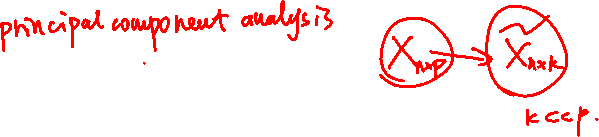 principal component analysis
X n×p → X̃ n×k
k<<p.